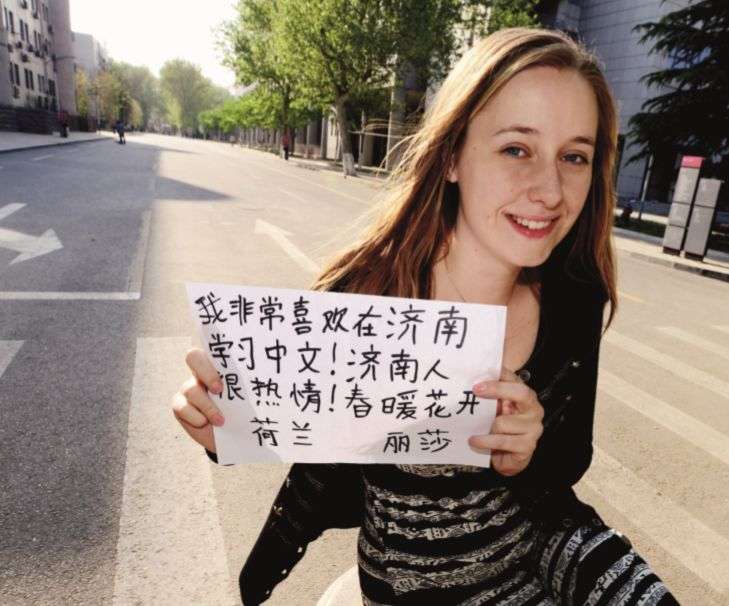 我非常喜欢在济南
学习中文!济南人
很热情!春暖花开
荷兰 丽莎